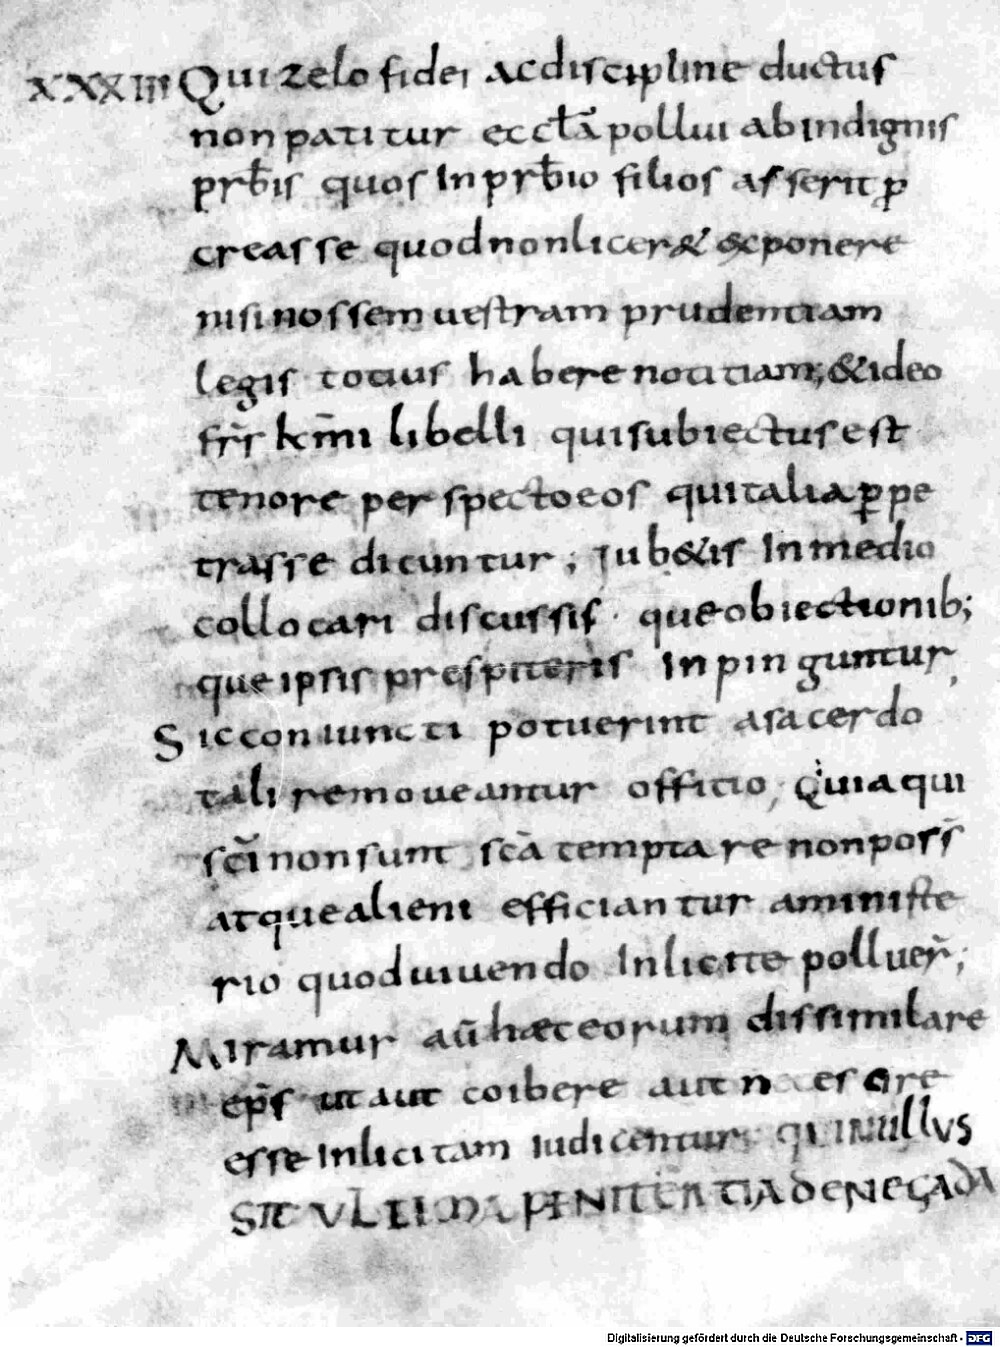 XXXIII Qui zelo fidei ac discipline ductus
non patitur eccłā pollui ab indignis
prƀis quos in prƀio filios asserit p̱
creasse quod non licer& exponere
nisi nossem uestram prudentiam
legis totius habere notitiam; & ideo
fr̃r km̃i libelli qui subiectus est
tenore perspecto eos qui talia p̱pe
trasse dicuntur; Iub&is in medio
collocari discussis· que obiectionib;
que ipsis prespiteris inpinguntur,
Sic coniuncti potuerint a sacerdo
tali remoueantur officio, Quia qui
scī non sunt scā temptare non poss̃
atque alieni efficiantur a ministe
rio quod uiuendo inlicite polluer̃;
Miramur aū hæc eorum dissimilare
ep̃s ut aut coibere aut
esse inlicitam iudicentur qui nullus
SIT ULTIMA PENITĒTIA DENEGĀDA
Digitalisierung gefördert durch die Deutsche Forschungsgemeinschaft - DFG